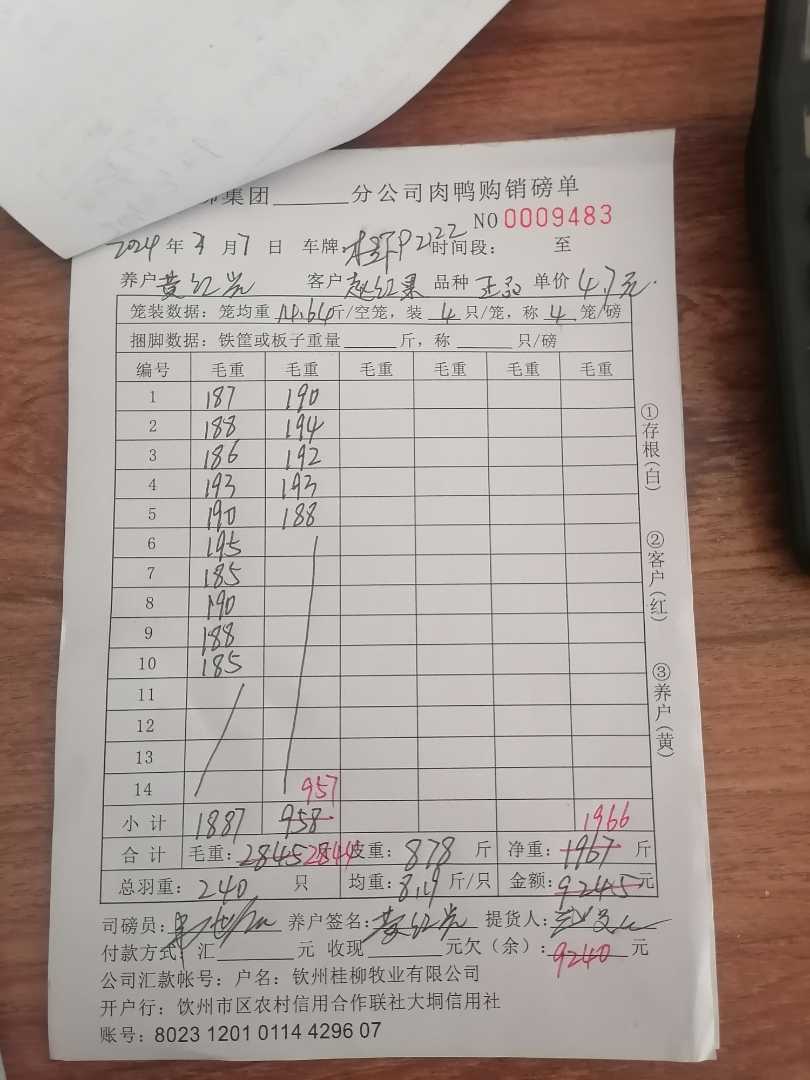 集团______分公司肉鸭购销磅单
NO 0009483
2024年3月7日 车牌:桂 P2122 时间段: 至
养户 黄红 客户 赵红 品种 单价 4.7元
笼装数据:笼均重 14.64 斤/空笼,装 4 只/笼,称 4 笼/磅
捆脚数据:铁筐或板子重量______斤,称______只/磅
编号 毛重 毛重 毛重 毛重 毛重 毛重
1 187 190
2 188 194
3 186 192
4 193 193
5 190 188
6 195
7 185
8 190
9 188
10 185
11
12
13
14 957
小计 1887 958 1966
合计 毛重:2845 2844 皮重:878 斤 净重:1967 斤
总羽重:240 只 均重:8.19 斤/只 金额:9245 元
司磅员: 养户签名:黄红 提货人:
付款方式:汇______元 收现______元欠(余):9240 元
公司汇款帐号:户名:钦州桂柳牧业有限公司
开户行:钦州市区农村信用合作联社大垌信用社
账号:8023 1201 0114 4296 07
①存根(白) ②客户(红) ③养户(黄)